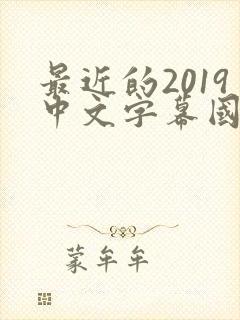 最近的2019
中文字幕國
蒙牟牟